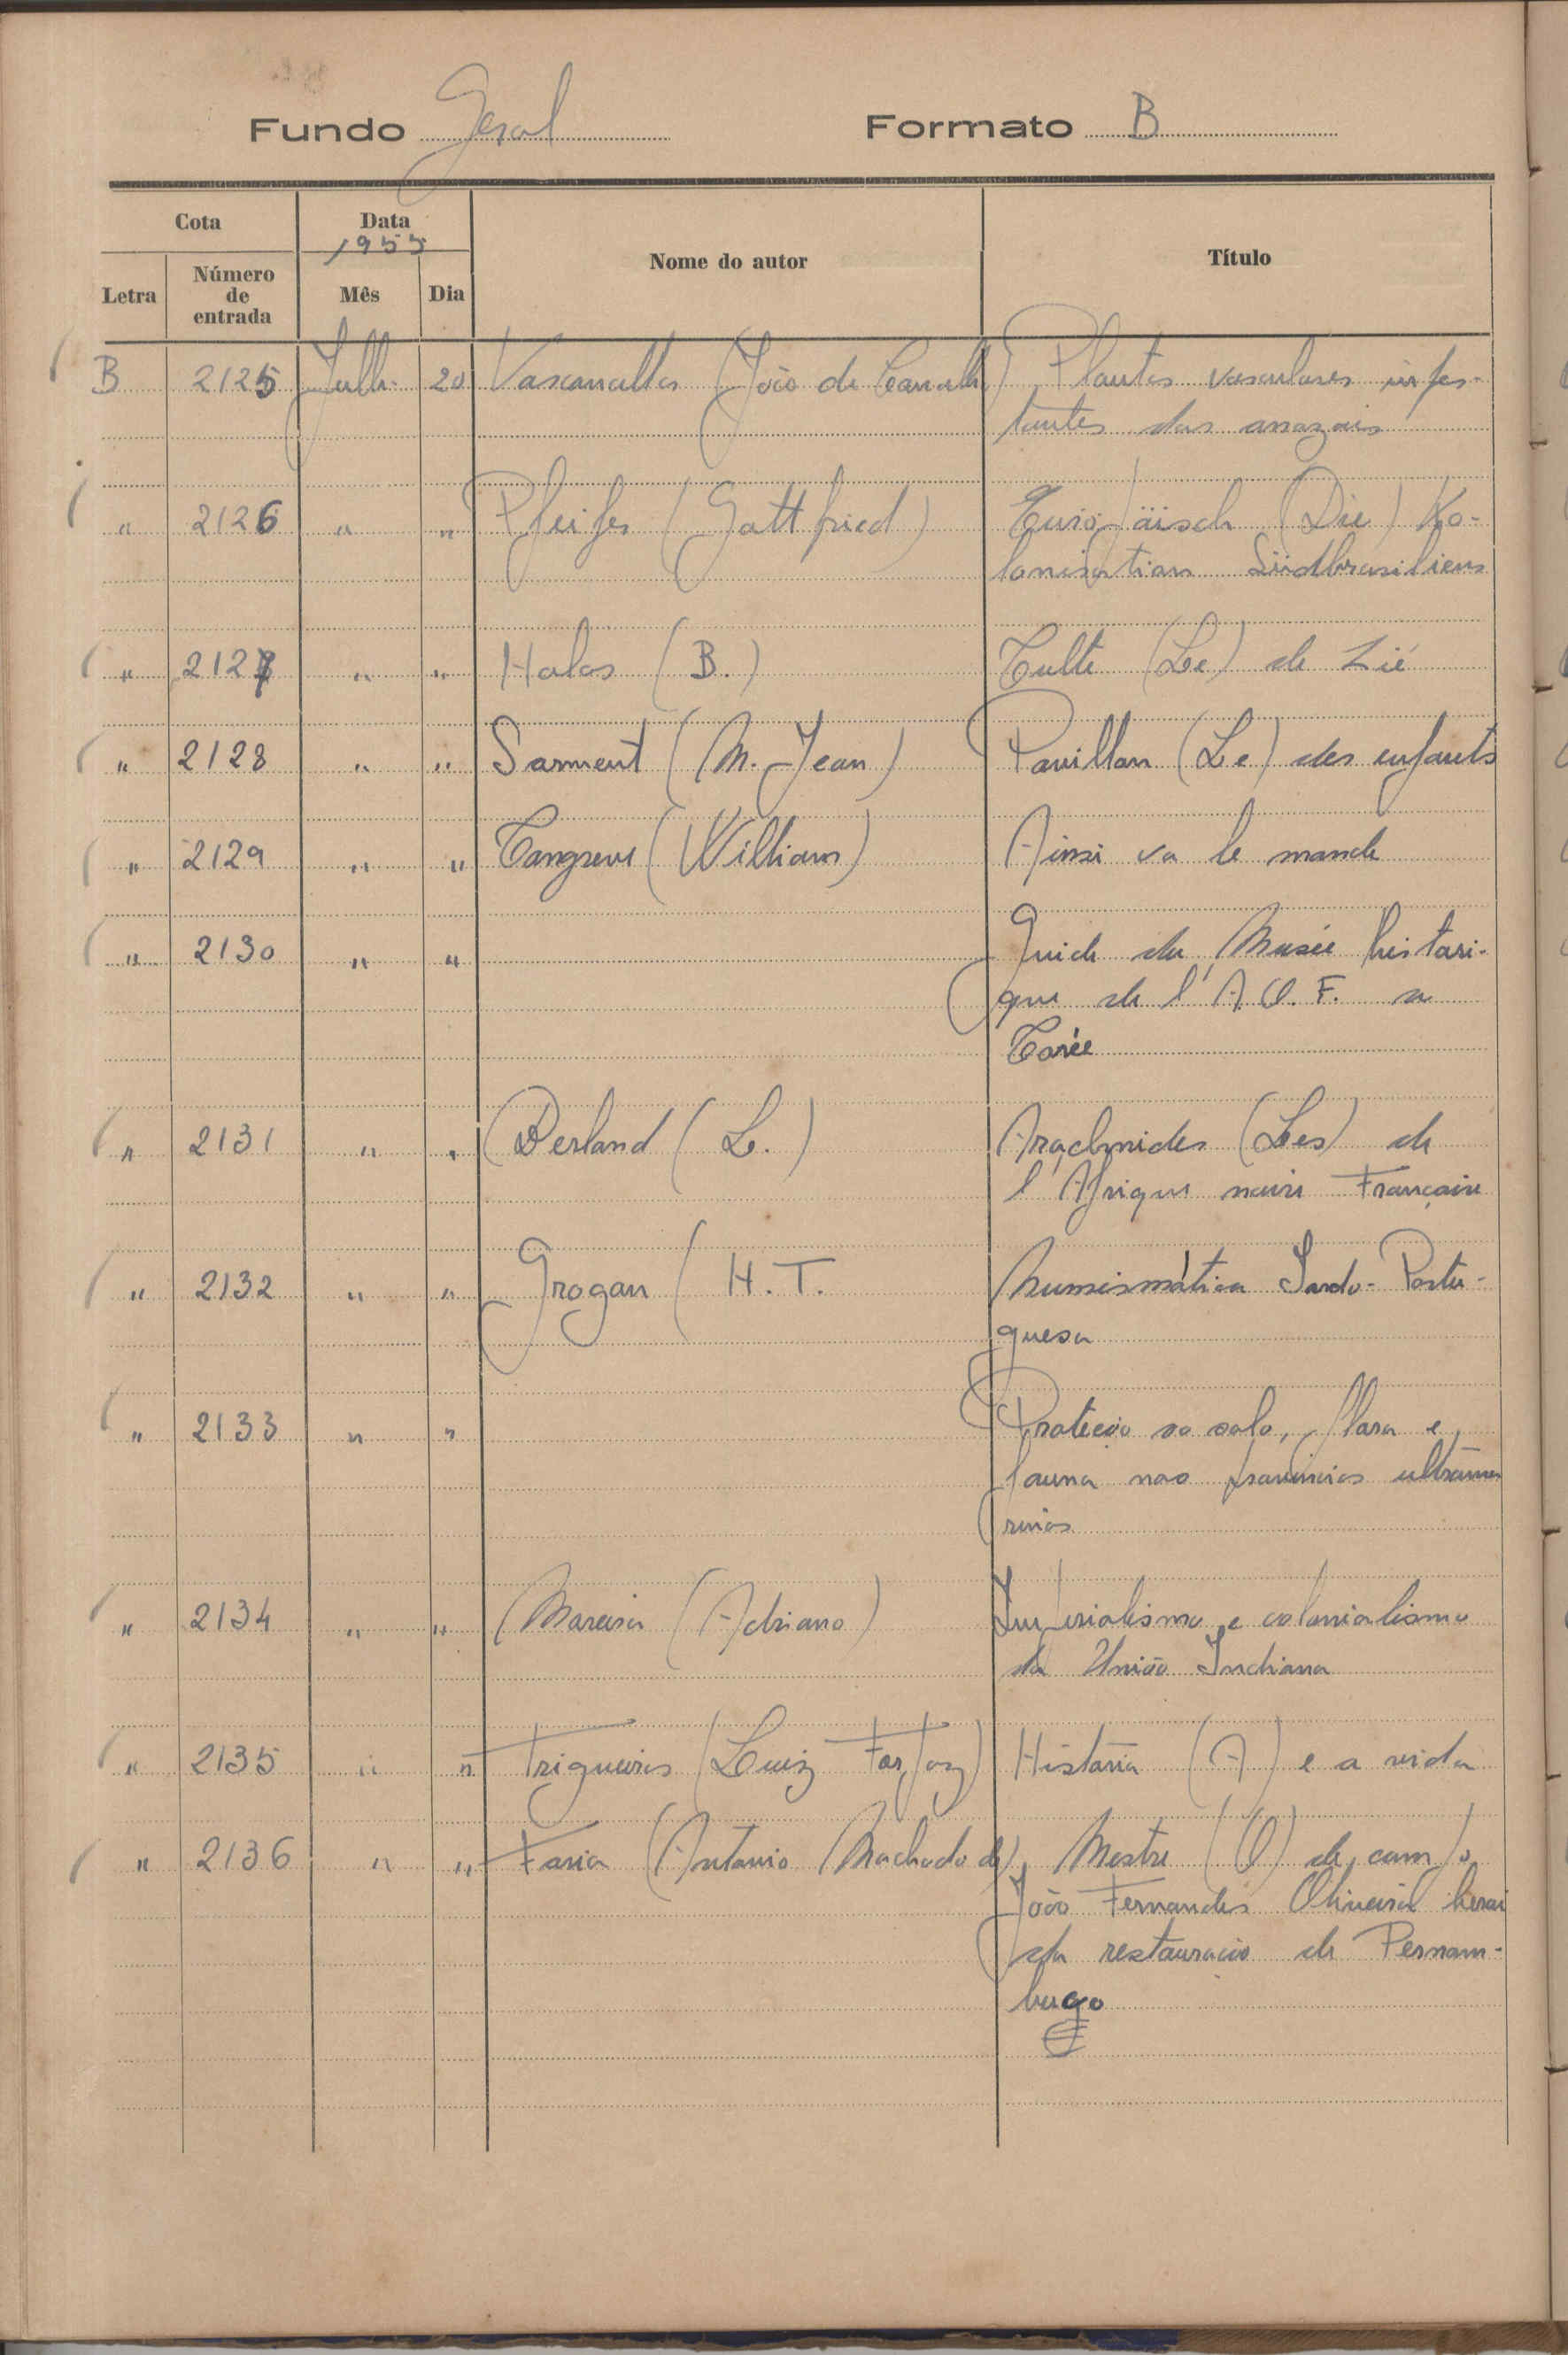 Fundo Geral Formato B
Cota Data Nome do autor Título
1955
Letra Número de entrada Mês Dia
B 2125 Julh. 20 Vasconcellos (João de Carvalho) Plantas vasculares infes-
tantes dos arrozais
" 2126 " " Pfeifer (Gottfried) Europäisch (Die) Ko-
lonisation Südbrasiliens
" 2127 " " Holas (B.) Culte (Le) de Zié
" 2128 " " Sarment (M. Jean) Pavillon (Le) des enfants
" 2129 " " Congreve (William) Ainsi va le monde
" 2130 " " Guide du Musée histori-
que de l'A.O.F. a
Gorée
" 2131 " " Berland (L.) Arachnides (Les) de
l'Afrique noire Française
" 2132 " " Grogan (H.T. Numismática Indo-Portu-
guesa
" 2133 " " Proteção ao solo, flora e
fauna nas províncias ultrama
rinas
" 2134 " " Moreira (Adriano) Imperialismo e colonialismo
da União Indiana
" 2135 " " Trigueiros (Luiz Forjaz) História (A) e a vida
" 2136 " " Faria (Antonio Machado de) Mestre (O) de campo
João Fernandes Oliveira herói
da restauracio de Pernam-
buco